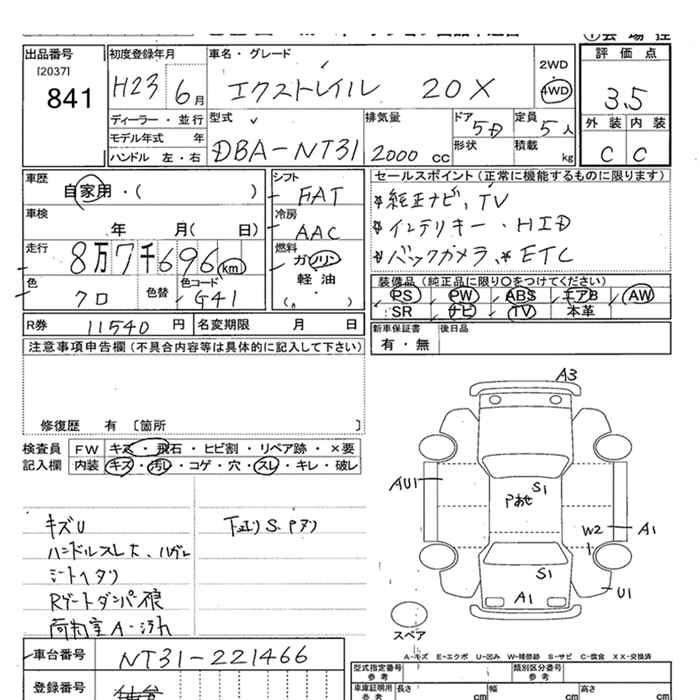 出品番号
[2037]
841
初度登録年月
H23 6月
車名・グレード
エクストレイル 20X
2WD
4WD
評価点
3.5
外装 内装
C C
ディーラー・並行
モデル年式 年
ハンドル 左・右
型式
DBA-NT31
排気量
2000 cc
ドア
5D
形状
定員
5人
積載
kg
車歴
自家用・( )
車検
年 月( 日)
走行
8万7千696km
色
クロ
色替
色コード
G41
シフト
FAT
冷房
AAC
燃料
ガソリン
軽油
( )
セールスポイント(正常に機能するものに限ります)
純正ナビ、TV
インテリキー・HID
バックカメラ、ETC
装備品(純正品に限り○をつけてください)
PS PW ABS エアB AW
SR ナビ TV 本革
R券 11540円
名変期限 月 日
新車保証書
有・無
後日品
注意事項申告欄(不具合内容等は具体的に記入して下さい)
修復歴 有 〔箇所 〕
検査員
記入欄
FW キズ・飛石・ヒビ割・リペア跡・×要
内装 キズ・汚レ・コゲ・穴・スレ・キレ・破レ
キズU
ハンドルスレ大、ハゲ
シートヘタリ
Rゲートダンパ狼
荷物室
下廻りS、Pアリ
A3
AU1
S1
Pあせ
W2
A1
S1
A1
U1
スペア
A-キズ E-エクボ U-凹み W-補修跡 S-サビ C-腐食 XX-交換済
車台番号
NT31-221466
登録番号
仙台
型式指定番号
参考
類別区分番号
参考
車庫証明用
参考
長さ cm
幅 cm
高さ cm